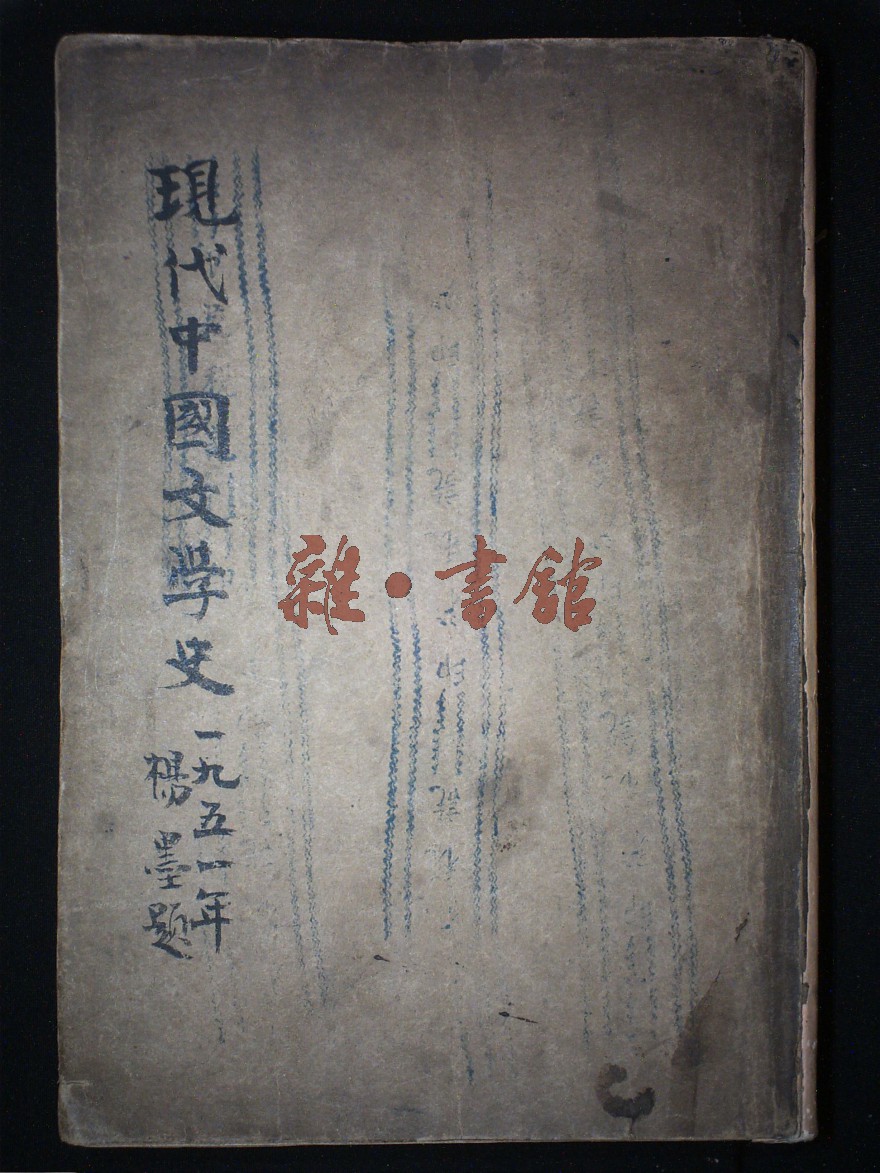 現代中國文學史
一九五一年
楊墨題
雜·書館